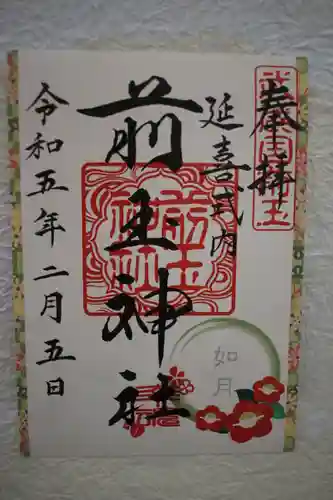 奉拝
延喜式内
前玉神社
令和五年二月五日
如月
前玉神社